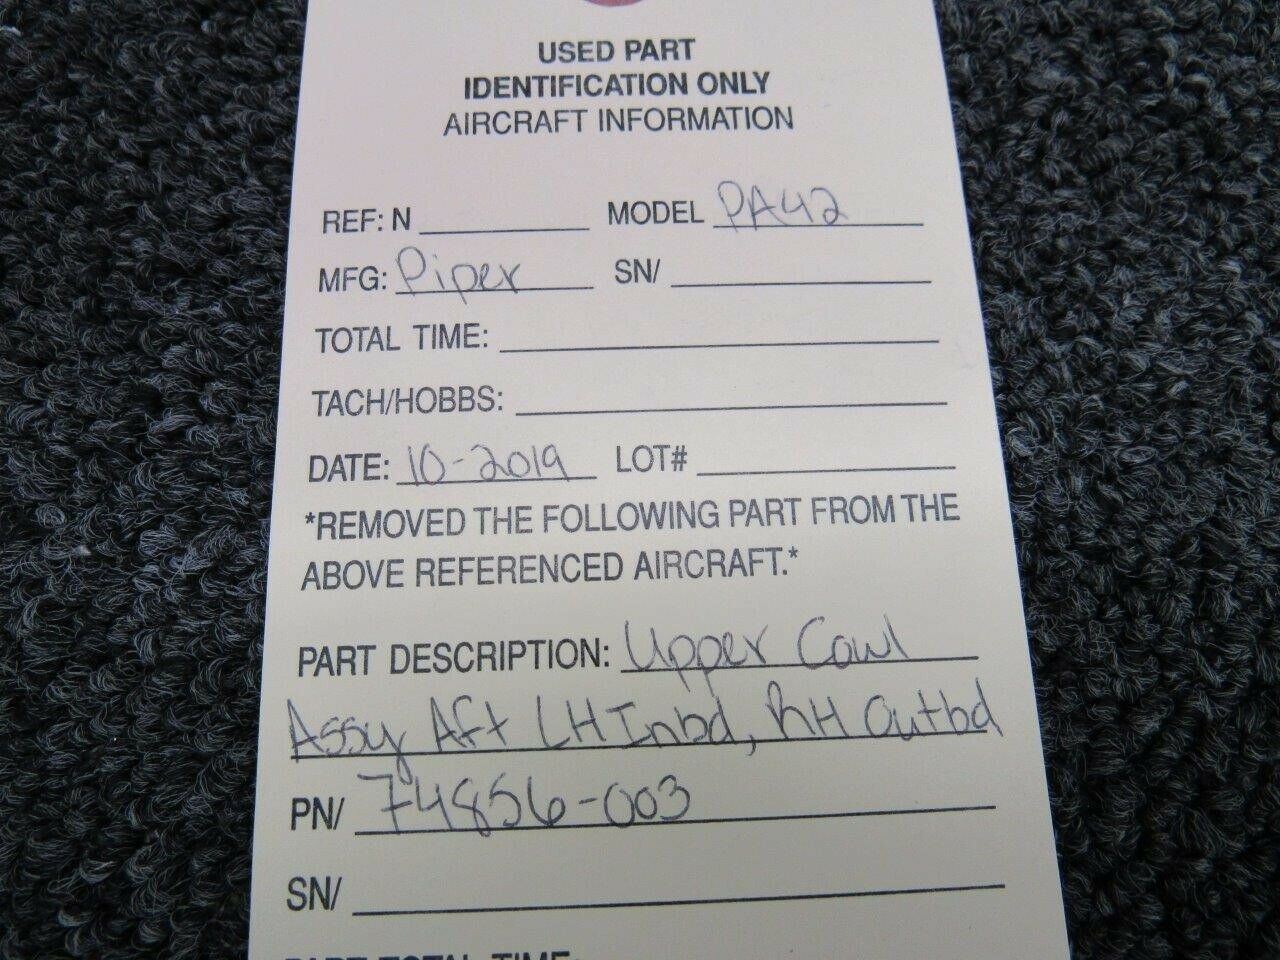 USED PART
IDENTIFICATION ONLY
AIRCRAFT INFORMATION
REF: N MODEL PA42
MFG: Piper SN/
TOTAL TIME:
TACH/HOBBS:
DATE: 10-2019 LOT#
*REMOVED THE FOLLOWING PART FROM THE
ABOVE REFERENCED AIRCRAFT.*
PART DESCRIPTION: Upper Cowl
Assy Aft LH Inbd, RH Outbd
PN/ 74856-003
SN/
PART TOTAL TIME: